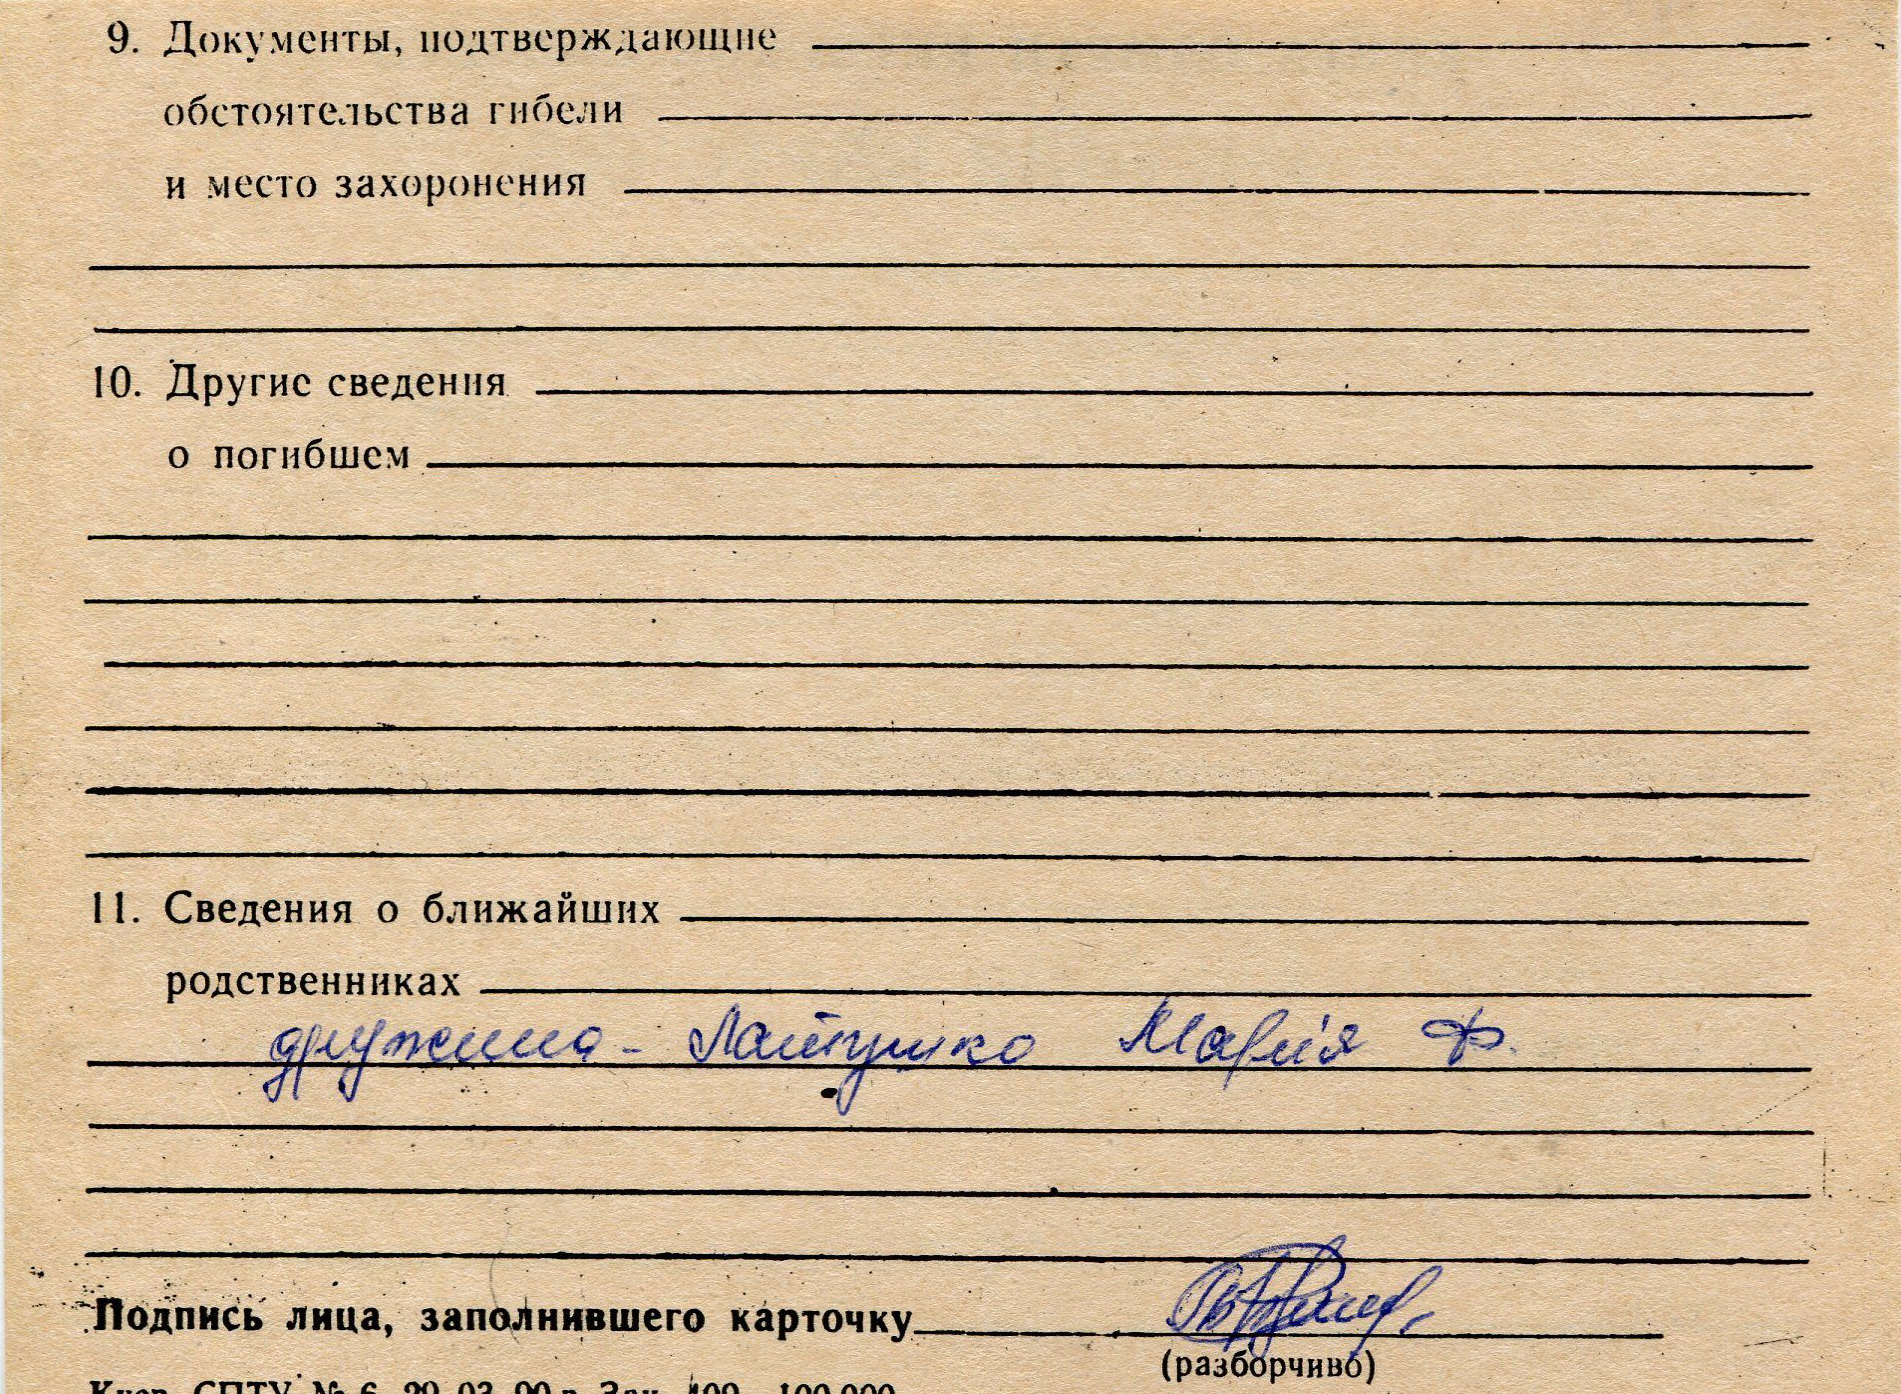 9. Документы, подтверждающие
обстоятельства гибели
и место захоронения
10. Другие сведения
о погибшем
11. Сведения о ближайших
родственниках
дружина - Марія Ф.
Подпись лица, заполнившего карточку
(разборчиво)
СПТУ № 6 29 03 90 г. Зак. 409 100 000